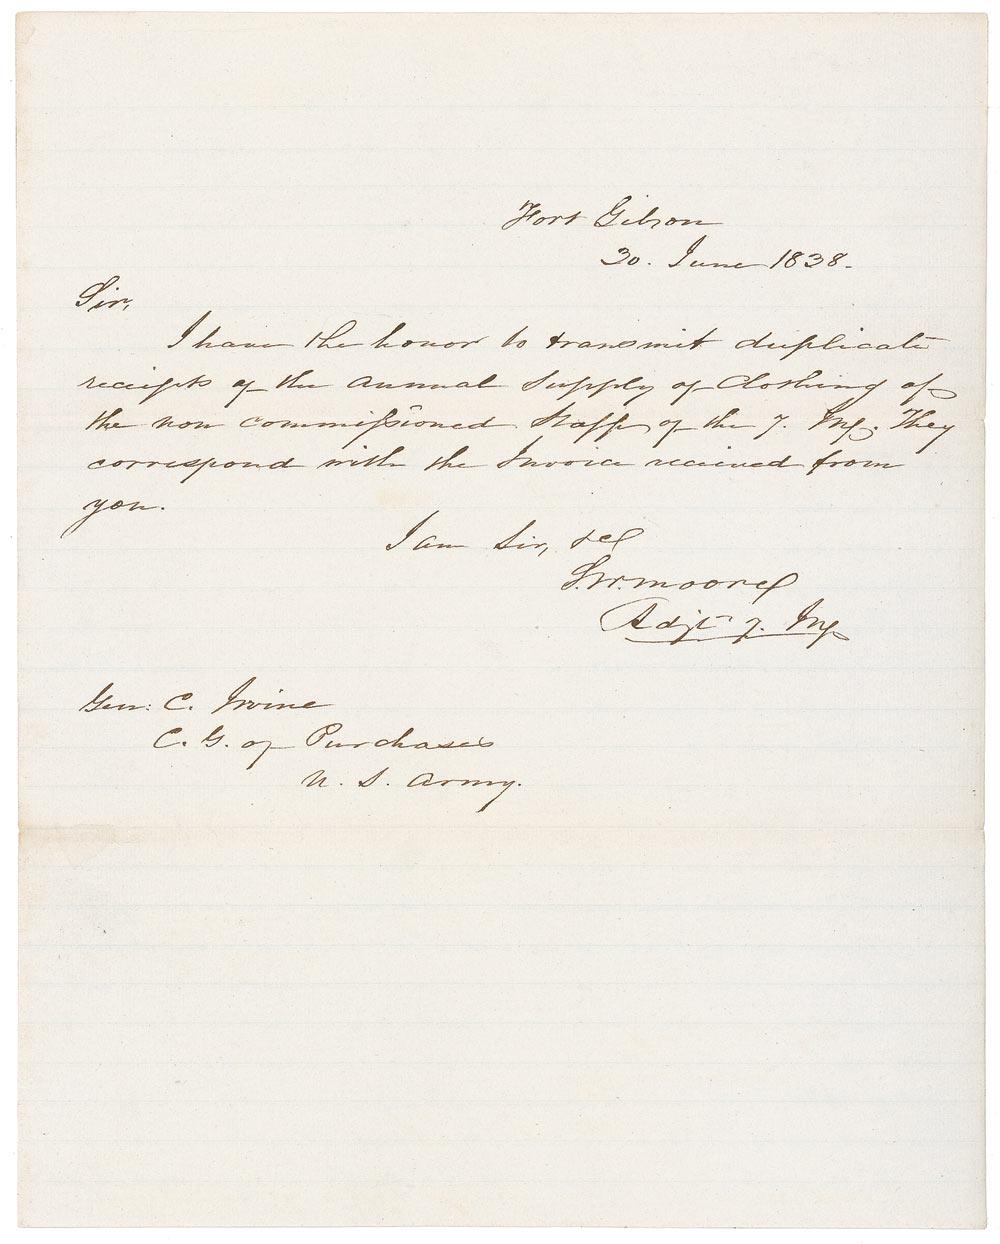 Fort Gibson
30. June 1838.
Sir,
I have the honor to transmit duplicate
receipts of the annual supply of Clothing of
the non commissioned Staff of the 7. Inf. They
correspond with the Invoice received from
you.
I am Sir, &c
S. W. Moore
Adjt 7. Inf
Gen: C. Irvine
C. G. of Purchases
U. S. Army.